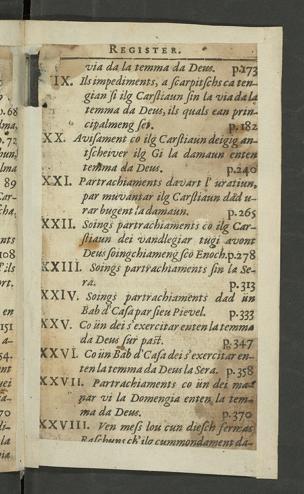 REGISTER.
via da la temma da Deus. p.173
IX. Ils impediments, a scarpitschs ca ten-
gian si ilg Carstiaun sin la via da la
temma da Deus, ils quals ean prin-
cipalmeng set. p.182
XX. Avisament co ilg Carstiaun deigig an-
tscheiver ilg Gi la damaun enten
temma da Deus. p.240
XXI. Partrachiaments davart l' uratiun,
par muvantar ilg Carstiaun dad u-
rar bugent la damaun. p.265
XXII. Soings partrachiaments co ilg Car-
stiaun dei vandlegiar tugi avont
Deus soingchiameng sco Enoch. p.278
XXIII. Soings partrachiaments sin la Se-
ra. p.313
XXIV. Soings partrachiaments dad ün
Bab d'Casa par sieu Pievel. p.333
XXV. Co ün dei s'exercitar enten la temma
da Deus sur past. p.347
XXVI. Co ün Bab d'Casa dei s'exercitar en-
ten la temma da Deus la Sera. p.358
XXVII. Partrachiaments co ün dei ma-
par vi la Domengia enten, la tem-
ma da Deus. p.370
XXVIII. Ven mess lou cun diesch fermas
Raschuns ch'ilg cummondament da-
p.68
p.72
89
108
151